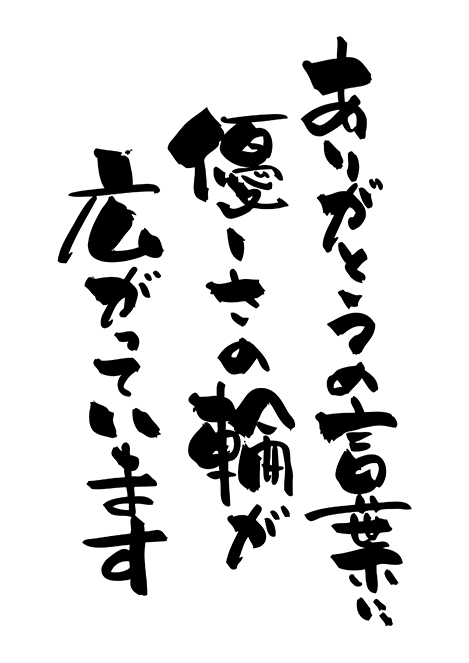 ありがとうの言葉に
優しさの輪が
広がっています